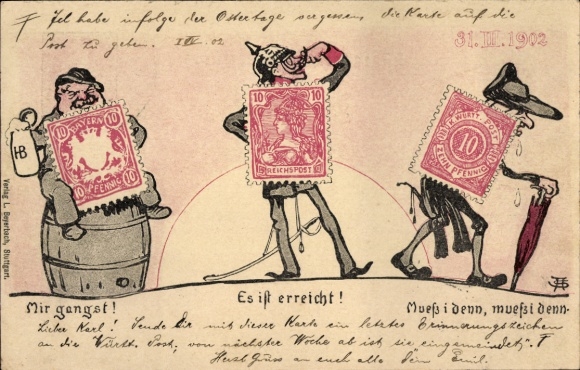 F Ich habe infolge der Ostertage vergessen, die Karte auf die
Post zu geben. 1 IV. 02
31.III.1902
HB
10 10
BAYERN
PFENNIG
10 10
10 10
REICHSPOST
K. WÜRTT. POST
10
ZEHN PFENNIG
Verlag L. Beyerbach, Stuttgart.
Mir gangst!
Es ist erreicht!
Mueß i denn, mueß i denn-
Lieber Karl! Sende Dir mit dieser Karte ein letztes Erinnerungszeichen
an die Württ. Post, von nächster Woche ab ist sie "eingemeindet". F
Herzl. Gruss an euch alle Dein Emil.